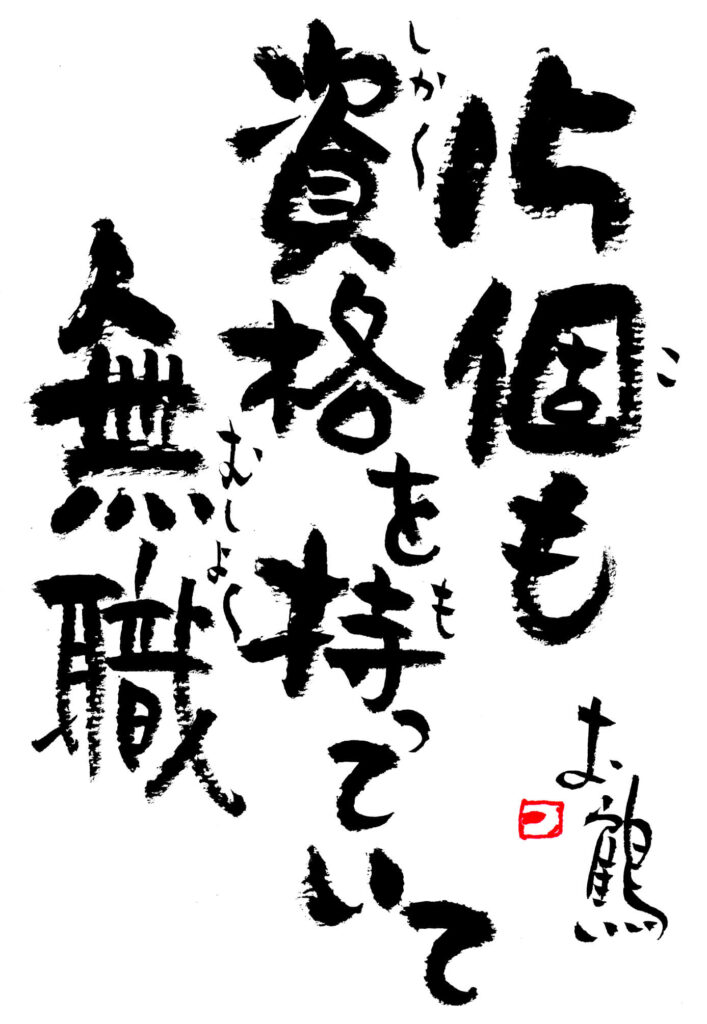 15個も
こ
資格を持っていて
しかく
も
無職
むしょく
お鶴
つ